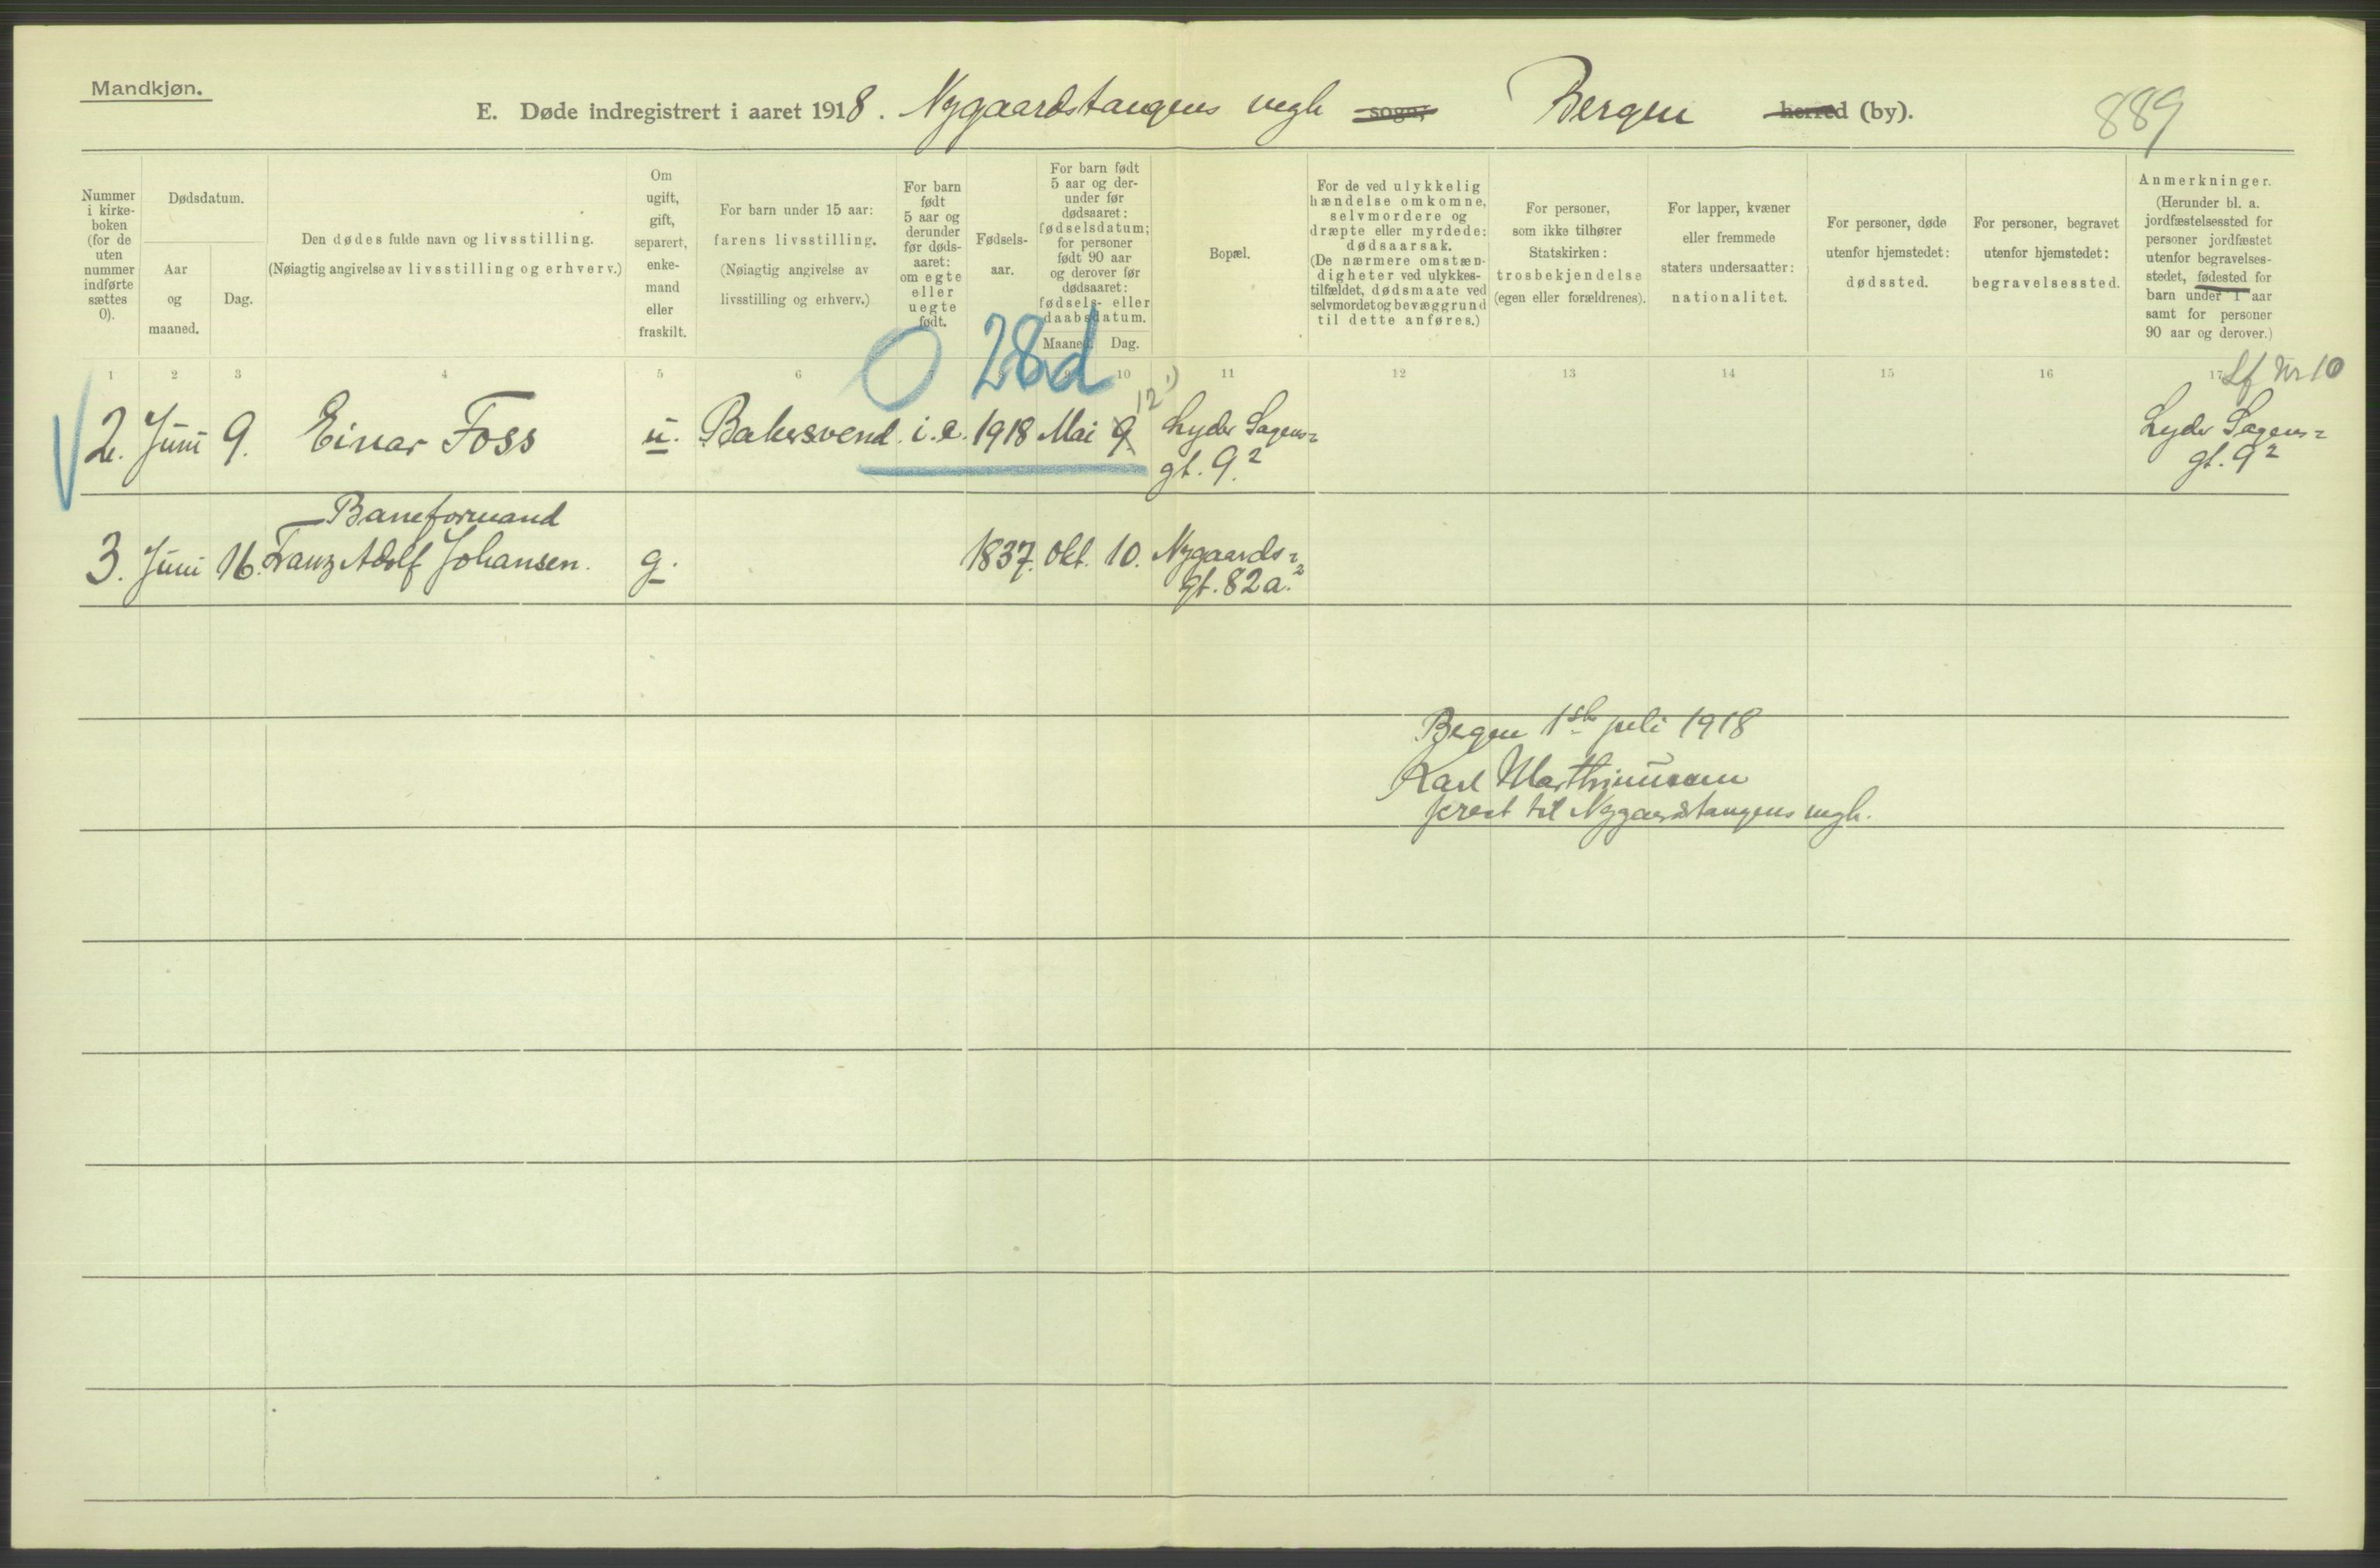 Mandkjøn.
E. Døde indregistrert i aaret 1918. Nygaardstangens megh sogn, Bergen herred (by). 889
Nummer i kirke-boken (for de uten nummer indførte sættes 0).
Dødsdatum.
Aar og maaned.
Dag.
Den dødes fulde navn og livsstilling.
(Nøiagtig angivelse av livsstilling og erhverv.)
Om ugift, gift, separert, enke-mand eller fraskilt.
For barn under 15 aar:
farens livsstilling.
(Nøiagtig angivelse av
livsstilling og erhverv.)
For barn født 5 aar og derunder før døds-aaret: om egte eller uegte født.
Fødsels-aar.
For barn født 5 aar og der-under før dødsaaret: fødselsdatum; for personer født 90 aar og derover før dødsaaret: fødsels- eller daabsdatum.
Maaned. Dag.
Bopæl.
For de ved ulykkelig hændelse omkomne, selvmordere og dræpte eller myrdede: dødsaarsak. (De nærmere omstæn-digheter ved ulykkes-tilfældet, dødsmaate ved selvmordet og bevæggrund til dette anføres.)
For personer, som ikke tilhører Statskirken: trosbekjendelse (egen eller forældrenes).
For lapper, kvæner eller fremmede staters undersaatter: nationalitet.
For personer, døde utenfor hjemstedet: dødssted.
For personer, begravet utenfor hjemstedet: begravelsessted.
Anmerkninger. (Herunder bl. a. jordfæstelsessted for personer jordfæstet utenfor begravelses-stedet, fødested for barn under 1 aar samt for personer 90 aar og derover.)
0 28d
1 2 3 4 5 6 7 8 9 10 11 12 13 14 15 16 17
Lf Nr 10
12 1)
2. Juni 9. Einar Foss u. Bakersvend. i.e. 1918 Mai 9. Lyder Sagens= Lyder Sagens=
gt. 9² gt. 9²
Baneformand
3. Juni 16. Franz Adolf Johansen. g. 1837. Okt. 10. Nygaards=
gt. 82a.²
Bergen 1ste juli 1918
Karl Marthinussen
prest til Nygaardstangens megh.